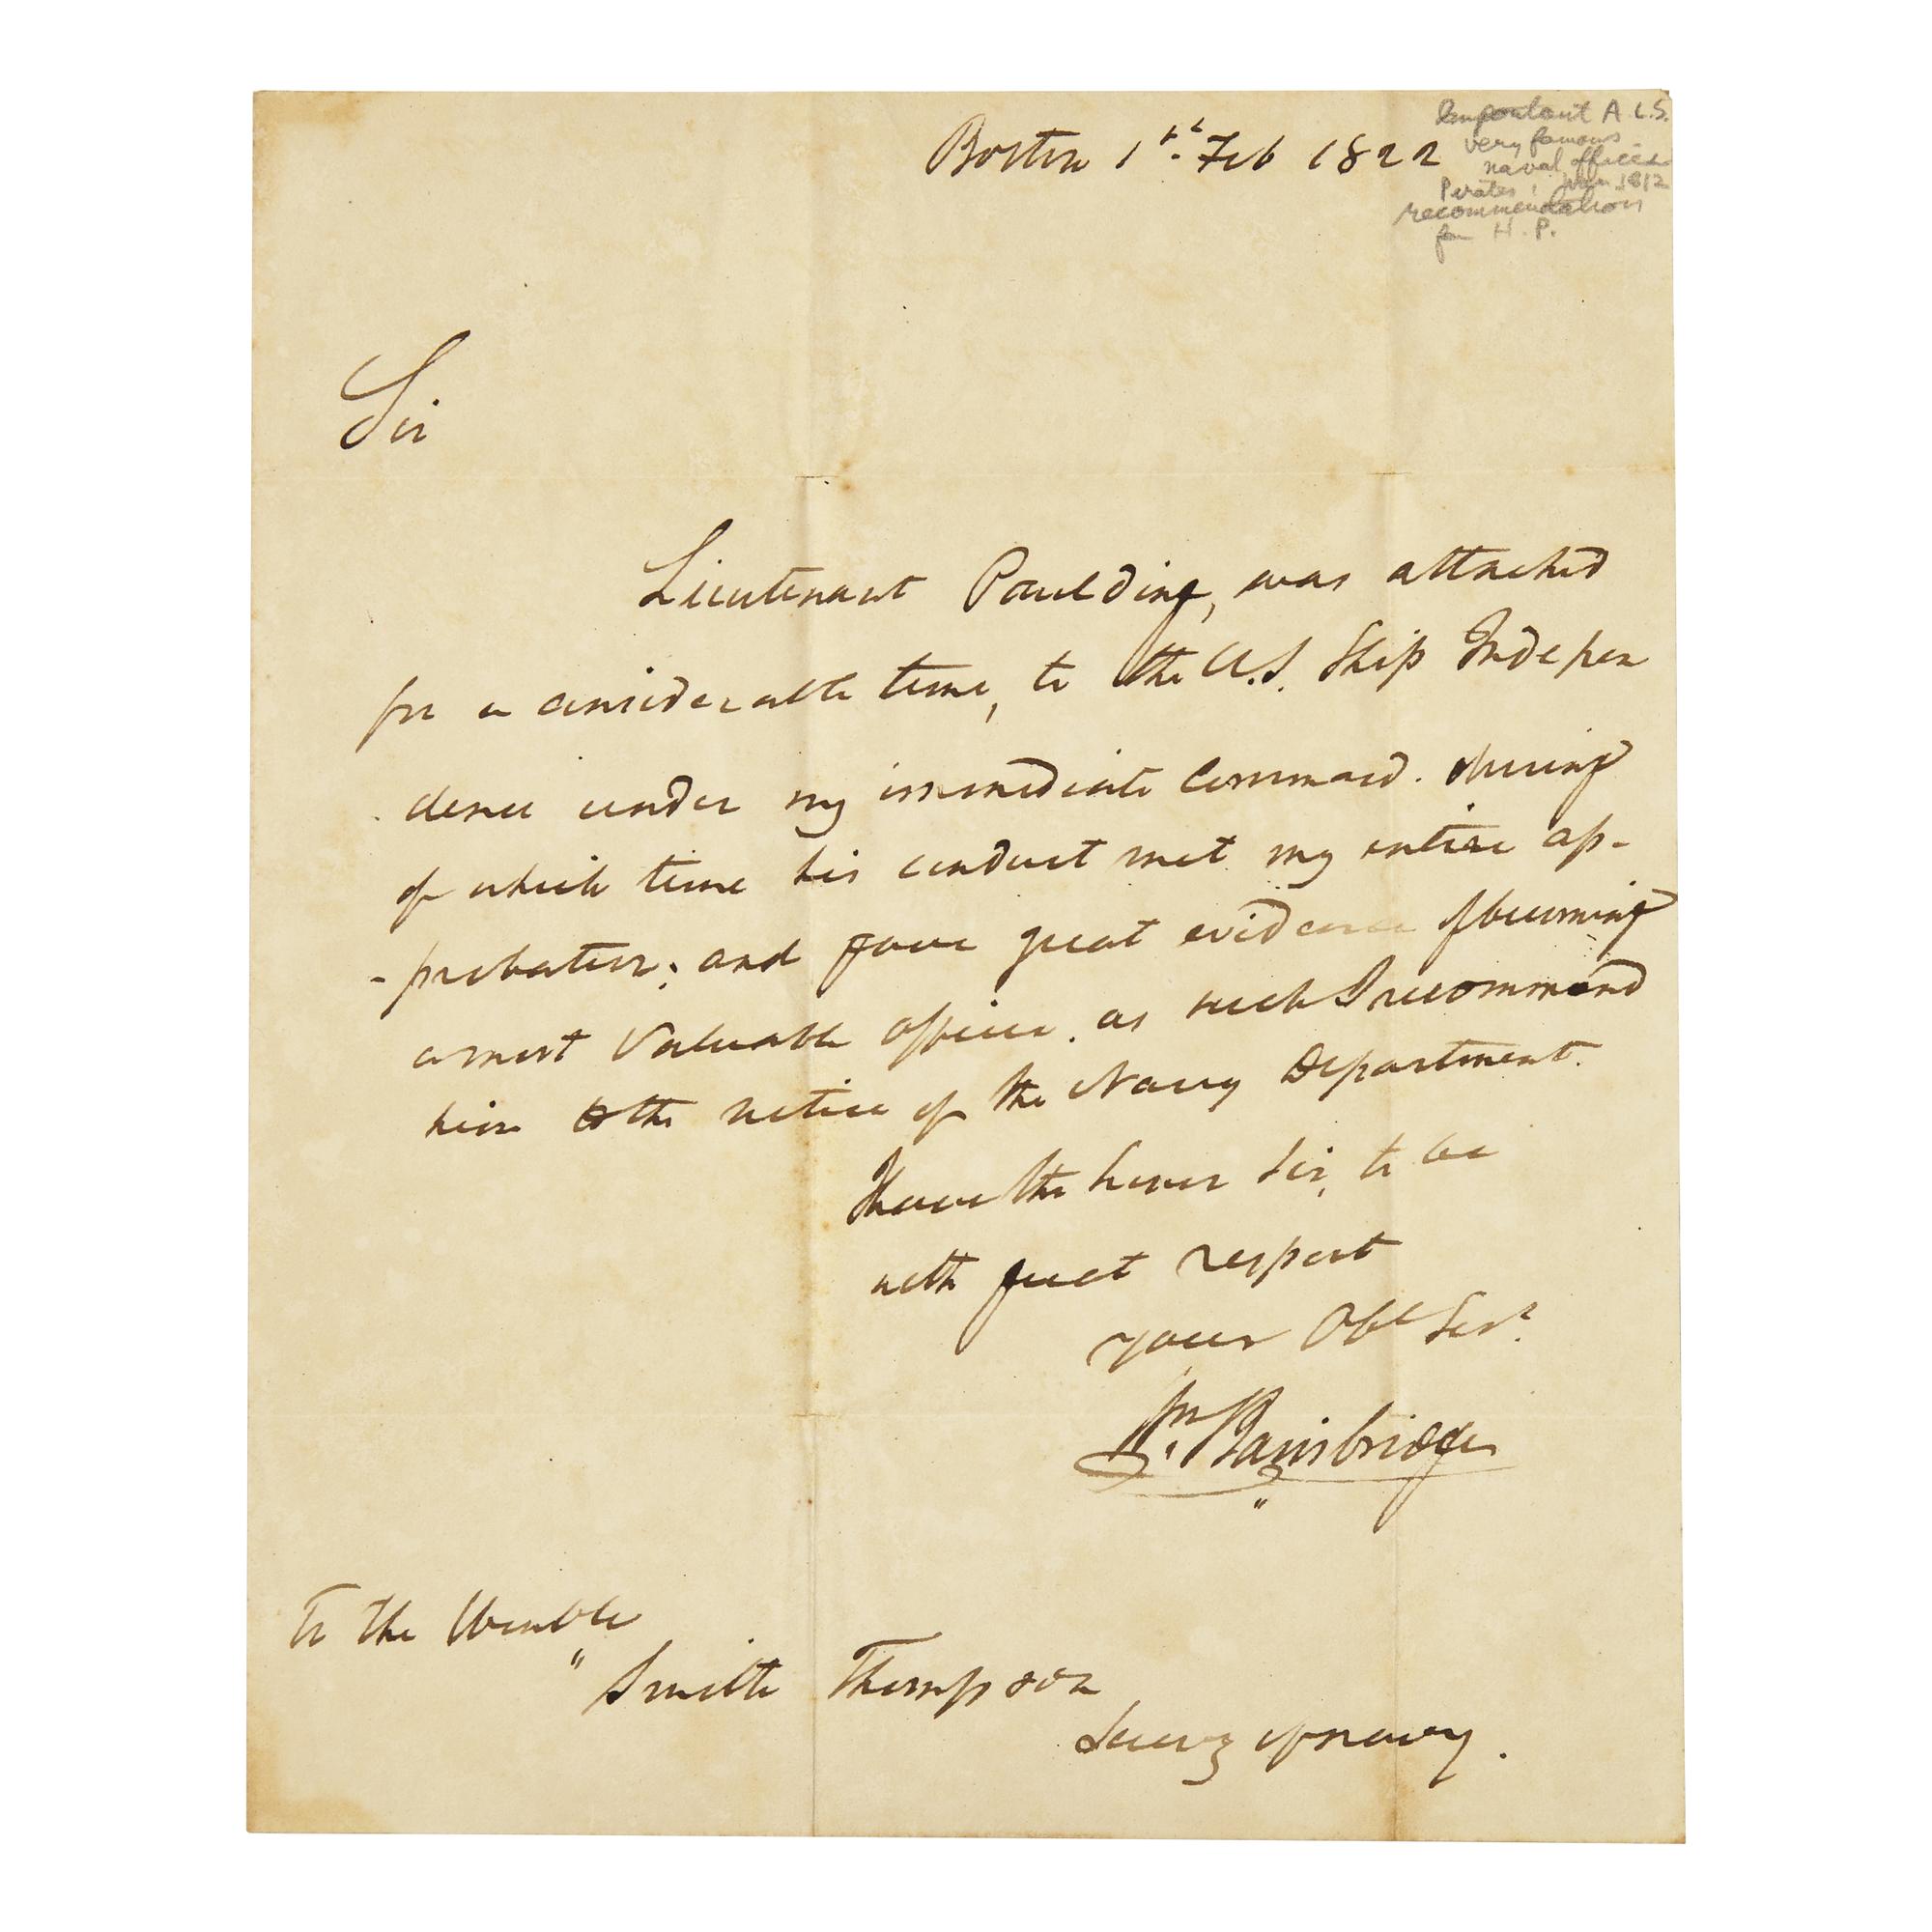 Boston 1st. Feb 1822
Important A.L.S.
very famous
naval officer
Pirates, War 1812
recommendation
for H.P.
Sir
Lieutenant Paulding, was attached
for a considerable time, to the U.S. Ship Indepen
dence under my immediate Command. during
of which time his conduct met my entire ap-
-probation; and gave great evidence of becoming
a most Valuable officer. as such I recommend
him to the notice of the Navy Department.
I have the honor Sir, to be
with great respect
your Obt Servt.
Wm. Bainbridge
To the Honble
Smith Thompson
Secry of navy.